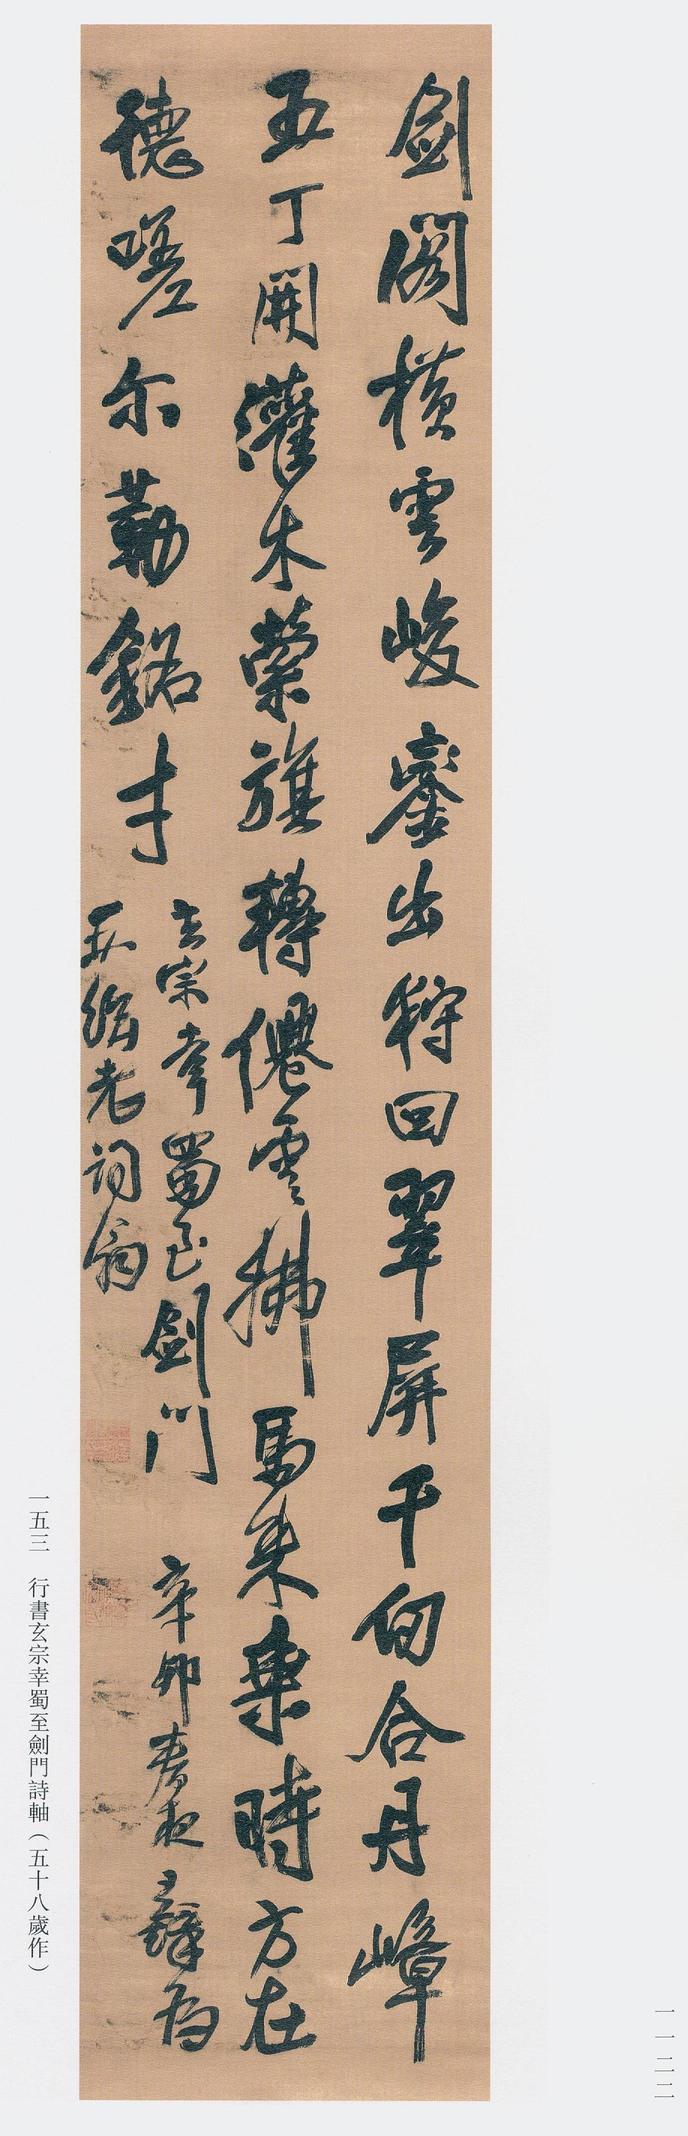 劍閣橫雲峻鑾出狩回翠屏千仞合丹嶂
五丁開灌木縈旗轉僊雲拂馬来乘時方在
德嗟尔勒銘才
玄宗幸蜀至劍門 辛卯春夜王鐸為
老詞翁
一五三 行書玄宗幸蜀至劍門詩軸（五十八歲作）
一一二二